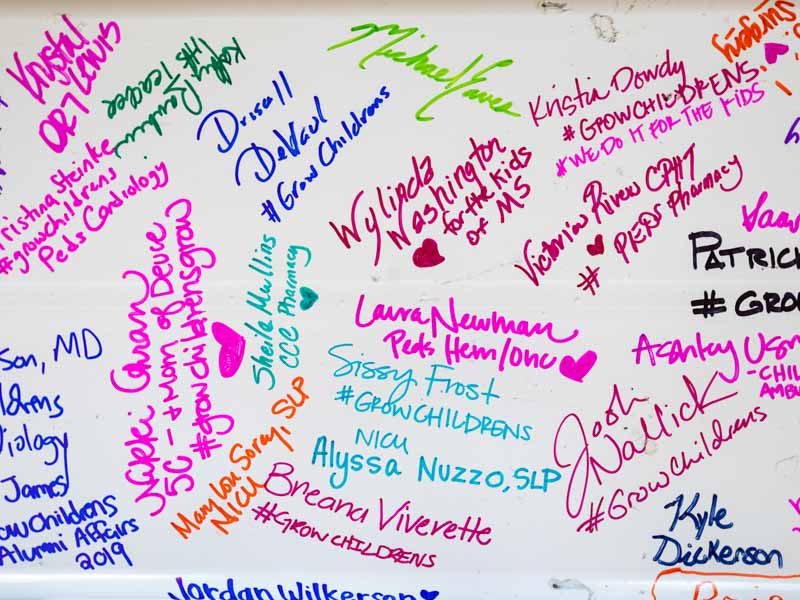 Krystal
Lewis
ORT
Kathy
IHS
Teacher
Driscoll
DeVaul
#Grow Childrens
Michael
Kristia Dowdy
#GROWCHILDRENS.
#WE DO IT FOR THE KIDS
Christina Steinke
#growchildrens
Peds Cardiology
Wylinda
Washington
for the kids
of MS
Victoria CPHT
# PEDS Pharmacy
PATRICK
# GRO
Nakki
5C - + Mom of Deuce
#growchildrensgrow
Sheila Mullins
CCC Pharmacy
Laura Newman
Peds Hem/onc
Sissy Frost
#GROWCHILDRENS
NICU
Alyssa Nuzzo, SLP
Mary Lou Soray, SLP
NICU
Breana Viverette
#GROW CHILDRENS
Ashley
-CHIL
AMBU
Josh
Nallick
#Growchildrens
son, MD
ldrens
iology
James
owchildrens
Alumni Affairs
2019
Kyle
Dickerson
Jordan Wilkerson